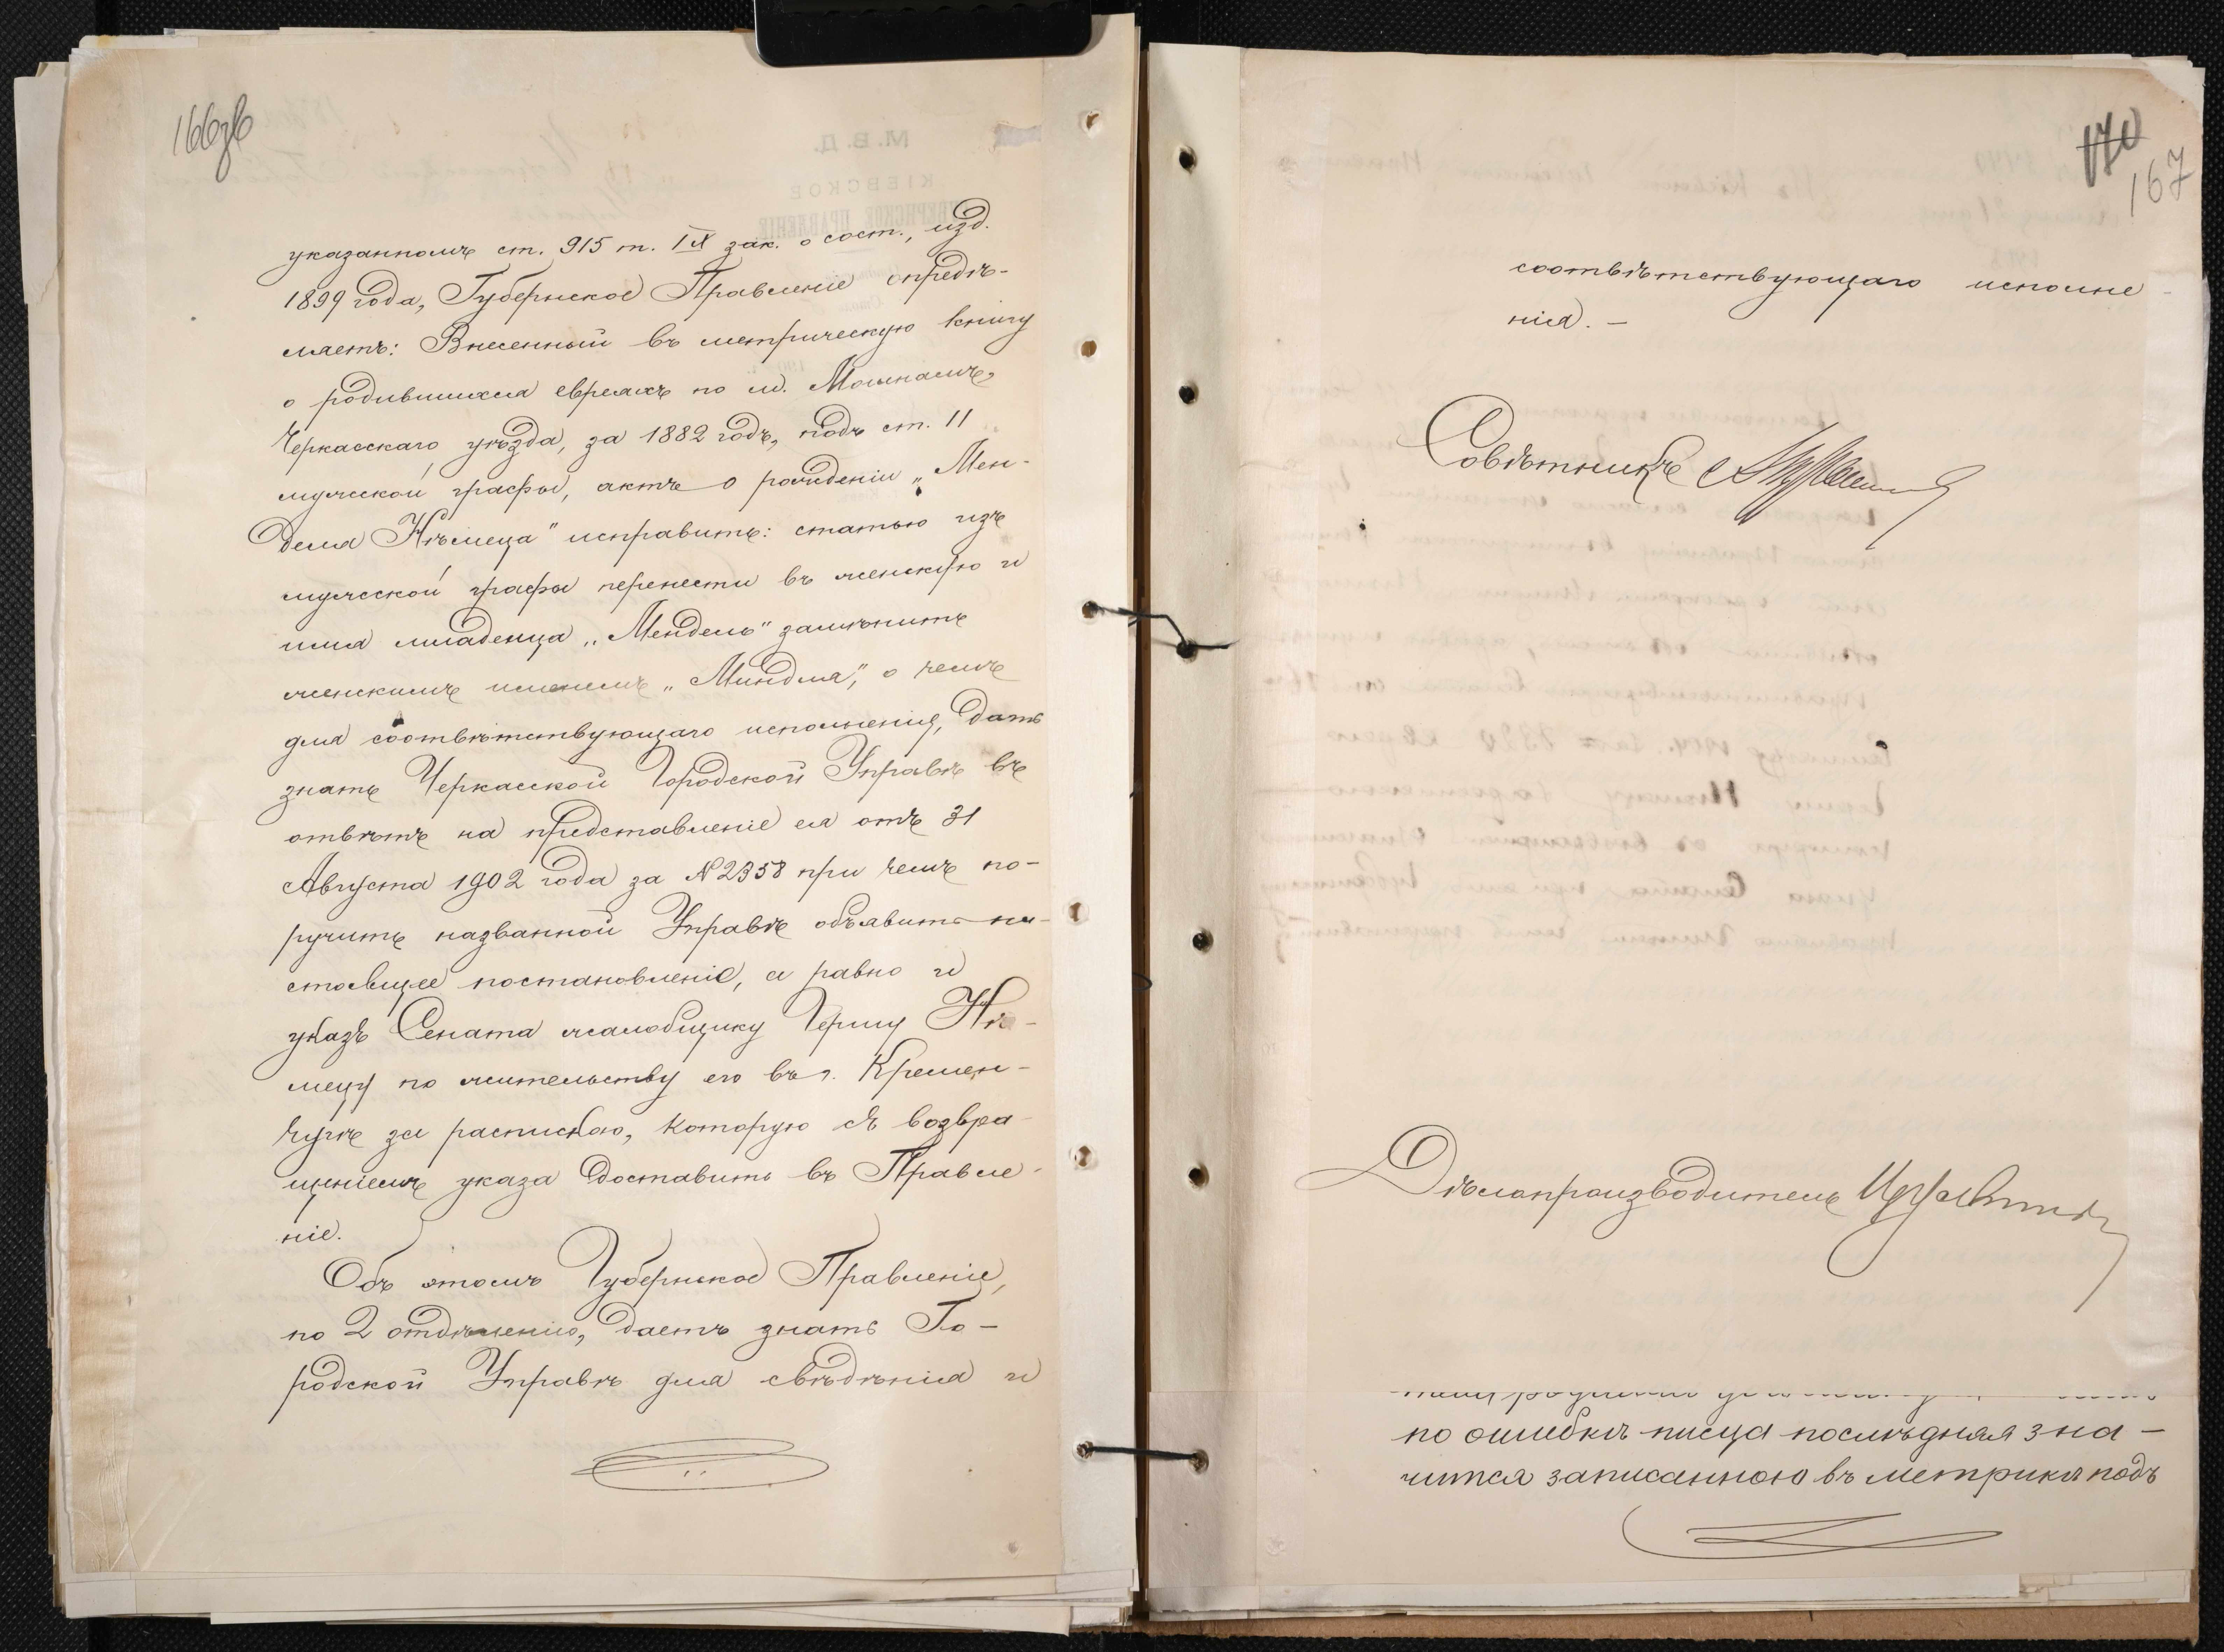 166зв
указанномъ ст. 915 т. IX зак. о сост., изд.
1899 года, Губернское Правленіе опредѣ-
ляетъ: Внесенный въ метрическую книгу
о родившихся евреяхъ по м. Мошнамъ,
Черкасскаго уѣзда, за 1882 годъ, подъ ст. 11
мужской графы, актъ о рожденіи „Мен-
деля Нѣмеца" исправить: статью изъ
мужской графы перенести въ женскую и
имя младенца „Мендель" замѣнить
женскимъ именемъ „Миндля", о чемъ
для соотвѣтствующаго исполненія, дать
знать Черкасской Городской Управѣ въ
отвѣтъ на представленіе ея отъ 31
Августа 1902 года за № 2358 при чемъ по-
ручить названной Управѣ объявить на-
стоящее постановленіе, а равно и
указъ Сената жалобщику Гершу Нѣ-
мецу по жительству его въ г. Кремен-
чугѣ за распискою, которую съ возвра
щеніемъ указа доставить въ Правле-
ніе.
Объ этомъ Губернское Правленіе,
по 2 отдѣленію, даетъ знать Го-
родской Управѣ для свѣдѣнія и
М.В.Д.
КІЕВСКОЕ
ГУБЕРНСКОЕ ПРАВЛЕНІЕ
170
167
соотвѣтствующаго исполне-
нія. –
Совѣтникъ
Дѣлопроизводитель
по ошибкѣ писца послѣдняя зна-
чится записанною въ метрикѣ подъ